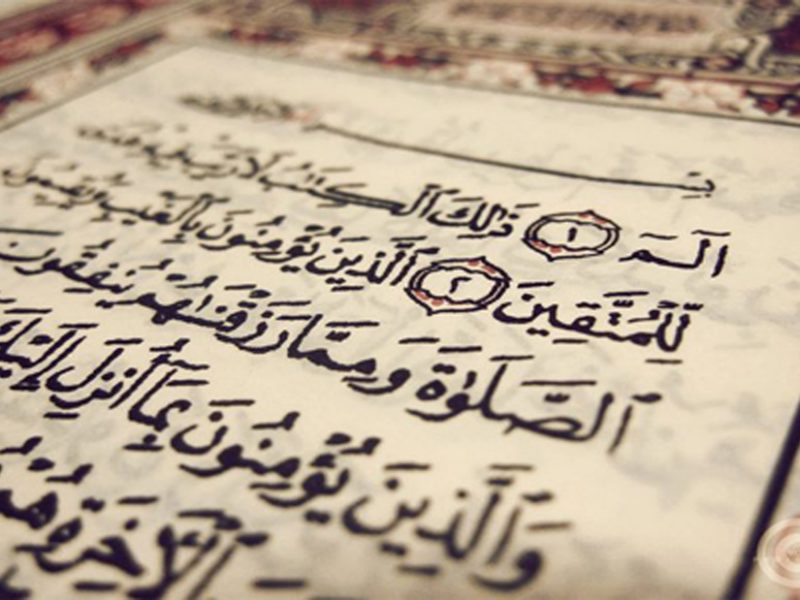 الٓمٓ ١ ذَٰلِكَ ٱلْكِتَٰبُ لَا رَيْبَ فِيهِ هُدًى
لِّلْمُتَّقِينَ ٢ ٱلَّذِينَ يُؤْمِنُونَ بِٱلْغَيْبِ وَيُقِيمُونَ
ٱلصَّلَوٰةَ وَمِمَّا رَزَقْنَٰهُمْ يُنفِقُونَ
وَٱلَّذِينَ يُؤْمِنُونَ بِمَآ أُنزِلَ إِلَيْكَ
ٱلْأٓخِرَةِ هُمْ